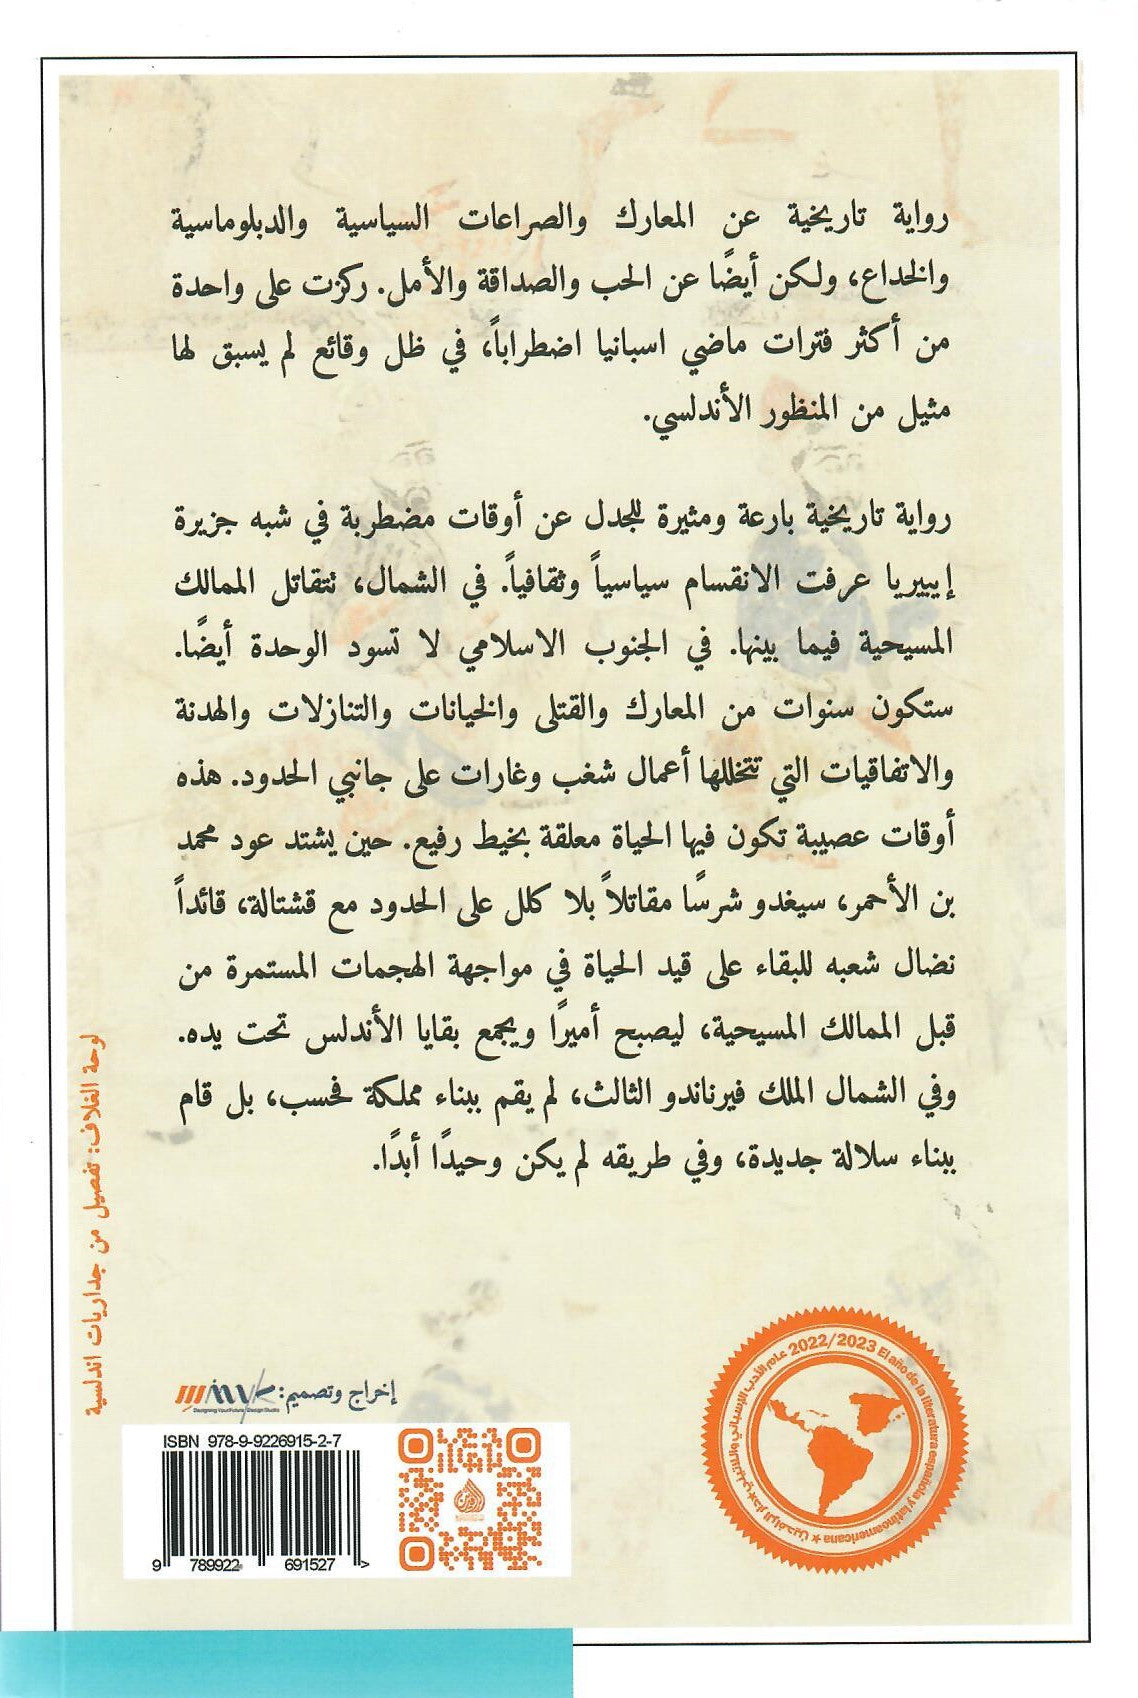 رواية تاريخية عن المعارك والصراعات السياسية والدبلوماسية
والخداع، ولكن أيضًا عن الحب والصداقة والأمل. ركزت على واحدة
من أكثر فترات ماضي اسبانيا اضطراباً، في ظل وقائع لم يسبق لها
مثيل من المنظور الأندلسي.
رواية تاريخية بارعة ومثيرة للجدل عن أوقات مضطربة في شبه جزيرة
إيبيريا عرفت الانقسام سياسياً وثقافياً. في الشمال، تتقاتل الممالك
المسيحية فيما بينها. في الجنوب الاسلامي لا تسود الوحدة أيضًا.
ستكون سنوات من المعارك والقتلى والخيانات والتنازلات والهدنة
والاتفاقيات التي تتخللها أعمال شغب وغارات على جانبي الحدود. هذه
أوقات عصيبة تكون فيها الحياة معلقة بخيط رفيع. حين يشتد عود محمد
بن الأحمر، سيغدو شرسًا مقاتلاً بلا كلل على الحدود مع قشتالة، قائداً
نضال شعبه للبقاء على قيد الحياة في مواجهة الهجمات المستمرة من
قبل الممالك المسيحية، ليصبح أميرًا ويجمع بقايا الأندلس تحت يده.
وفي الشمال الملك فيرناندو الثالث، لم يقم ببناء مملكة فحسب، بل قام
ببناء سلالة جديدة، وفي طريقه لم يكن وحيدًا أبدًا.
لوحة الغلاف: تفصيل من جداريات اندلسية
عام الأدب الإسباني واللاتيني ★ دار الرافدين ★ 2022/2023 El año de la literatura española y latinoamericana
إخراج وتصميم:
ISBN 978-9-9226915-2-7
9 789922 691527 >